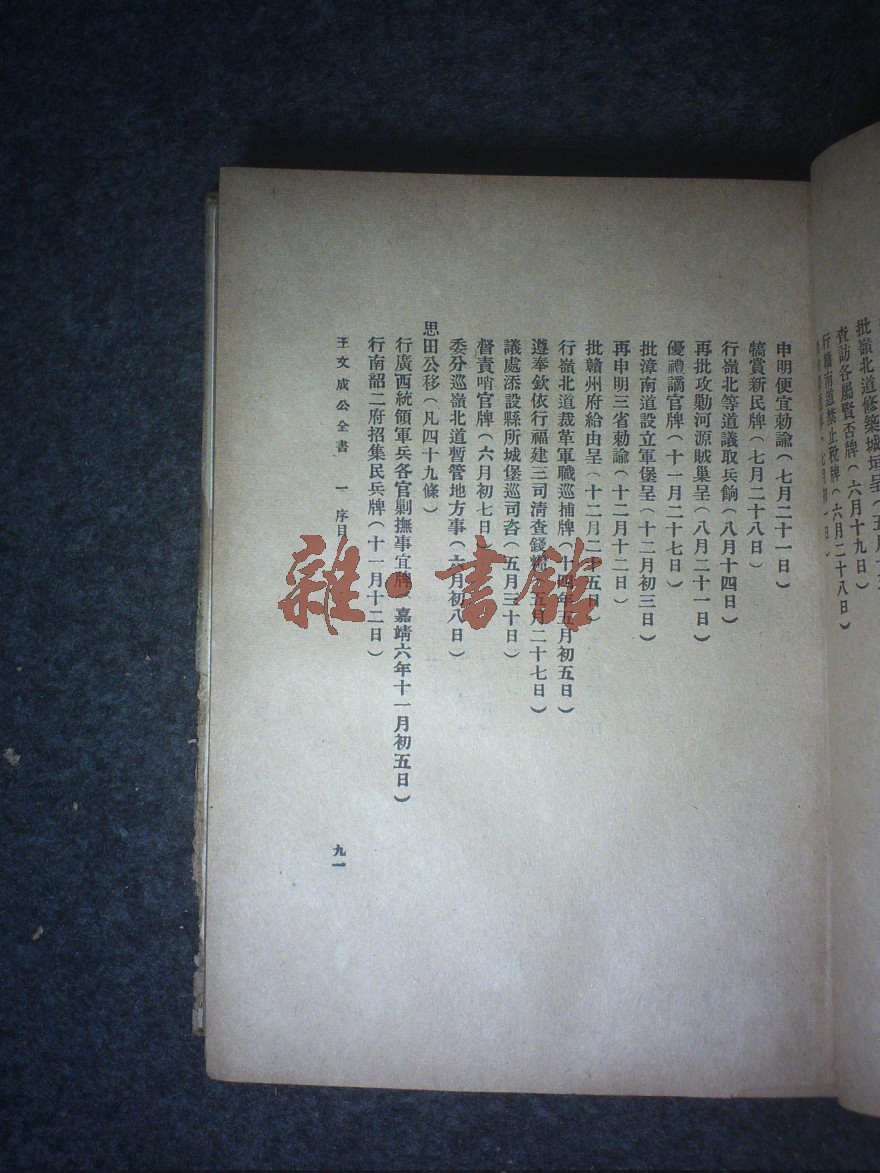 批嶺北道修築城垣呈（五月十
查訪各屬賢否牌（六月十九日）
行贛南道禁止稅牌（六月二十八日）
申明便宜勅諭（七月二十一日）
犒賞新民牌（七月二十八日）
行嶺北等道議取兵餉（八月十四日）
再批攻勦河源賊巢呈（八月二十一日）
優禮謫官牌（十一月二十七日）
批漳南道設立軍堡呈（十二月初三日）
再申明三省勅諭（十二月十二日）
批贛州府給由呈（十二月二十五日）
行嶺北道裁革軍職巡捕牌（十四年五月初五日）
遵奉欽依行福建三司清查錢糧（五月二十七日）
議處添設縣所城堡巡司咨（五月三十日）
督責哨官牌（六月初七日）
委分巡嶺北道暫管地方事（六月初八日）
思田公移（凡四十九條）
行廣西統領軍兵各官剿撫事宜牌（嘉靖六年十一月初五日）
行南韶二府招集民兵牌（十一月十二日）
王文成公全書 一 序目
九一
雜·書館